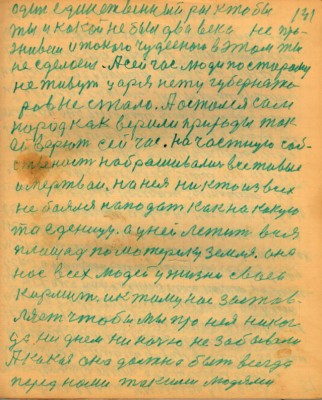 141
один единственный раз кто бы
ты и какой не был два века не про
живеш и такого чудесного в этом ты
не сделаеш. А сейчас люди по старому
не живут царя нету губернато
ров не стало. А остался сам
народ как верили природы так
ей верют сейчас. на частную соб
ственост набрасывались все живые
и мертваи. на нея никто из всех
не боялся нападат как на какую
то еденицу. а у ней лежит вся
площад по материку земля. она
нас всех людей у жизни своей
кормит. и к тому нас застав
ляет чтобы мы про нея никог
да ни днем ни ночю не забывали
А какая она должна быт всегда
перед нами такими людями